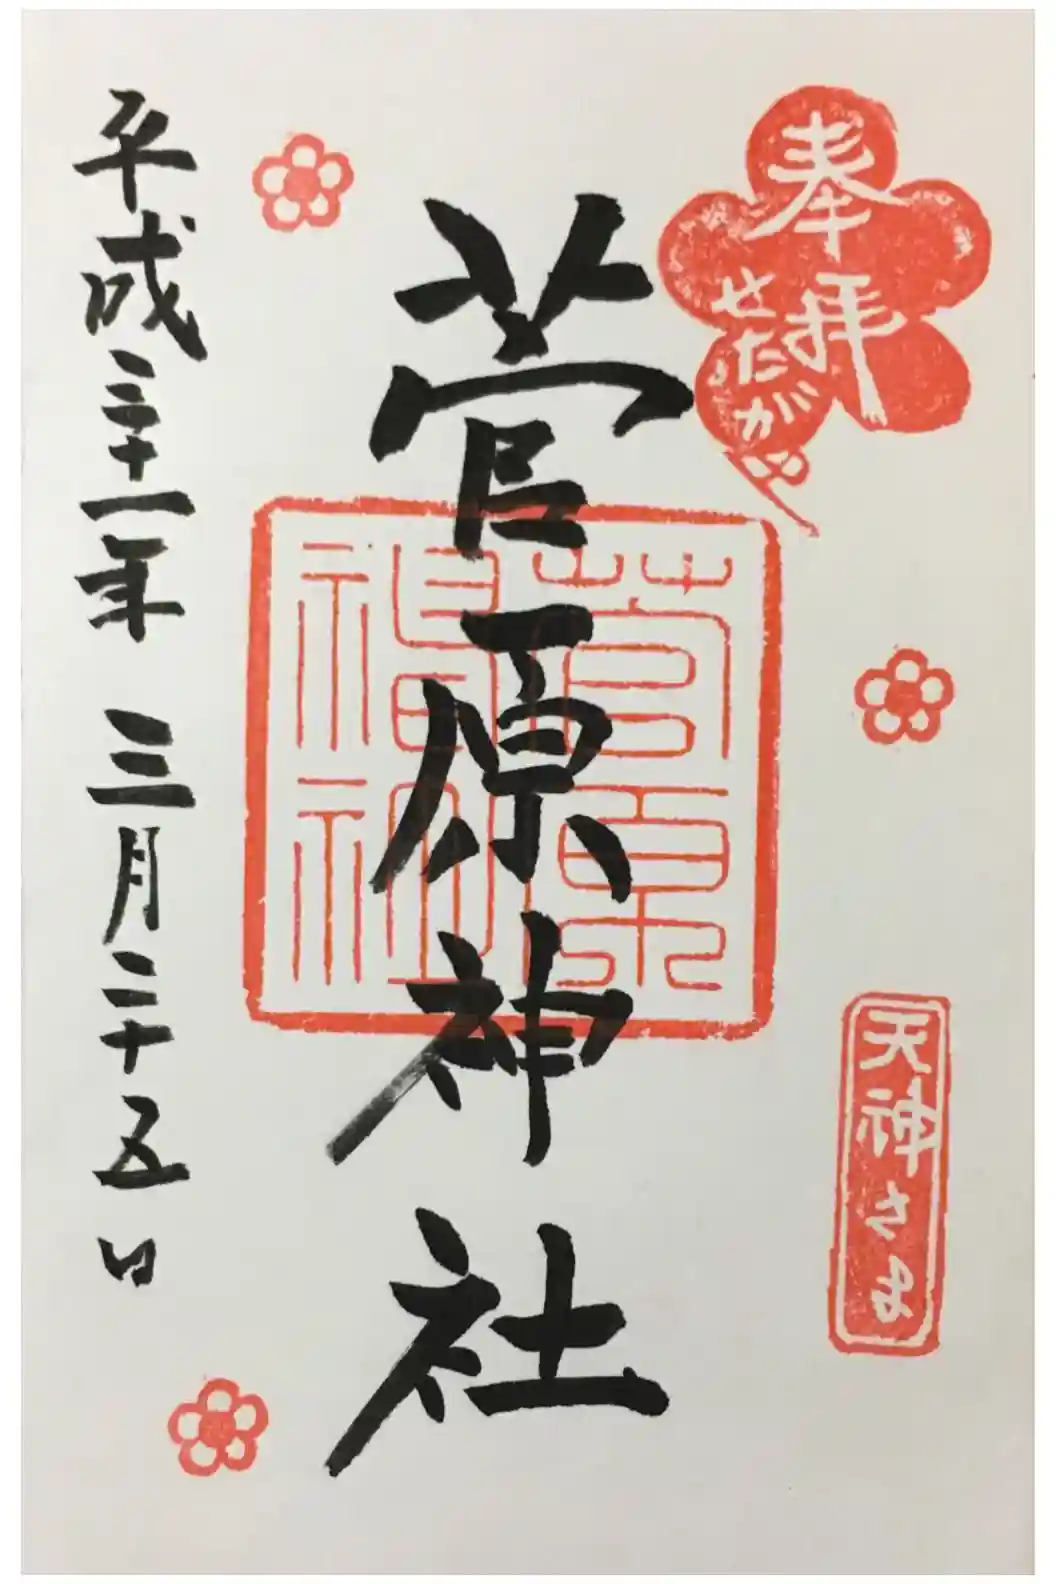 奉拝
せたがや
天神さま
菅原神社
菅原
平成三十一年 三月二十五日